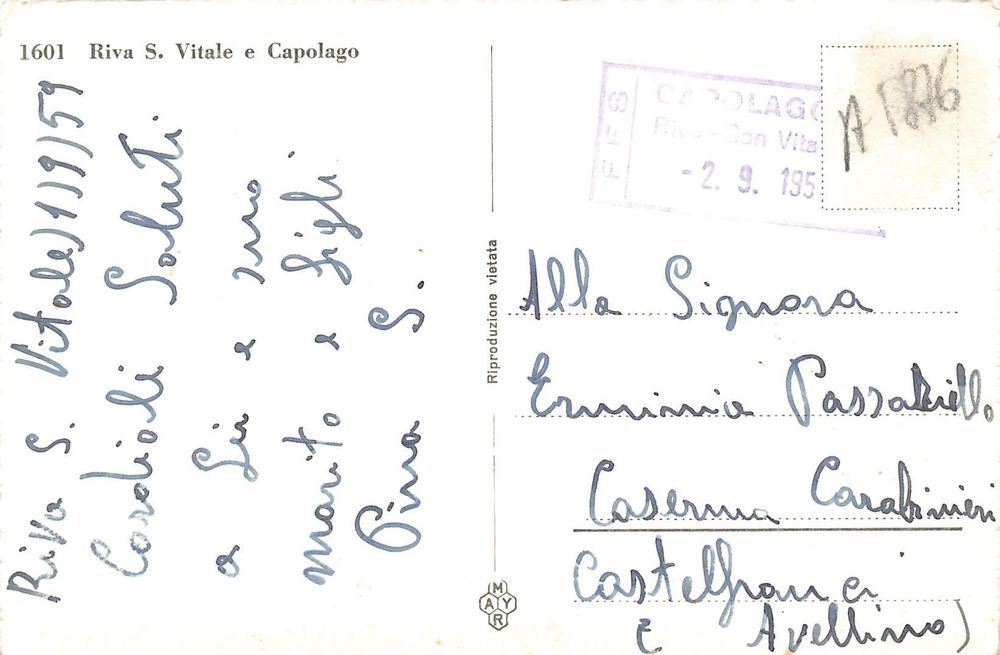 1601 Riva S. Vitale e Capolago
Riva S. Vitale 1/9/59
Cordiali Saluti
a Lui e suo
marito e figli
Pina S.
FFS
CAPOLAGO
Riva - San Vita
- 2. 9. 195
Riproduzione vietata
Alla Signora
Erminia Passariello
Caserma Carabinieri
Castelfranci
( Avellino)
MAYR